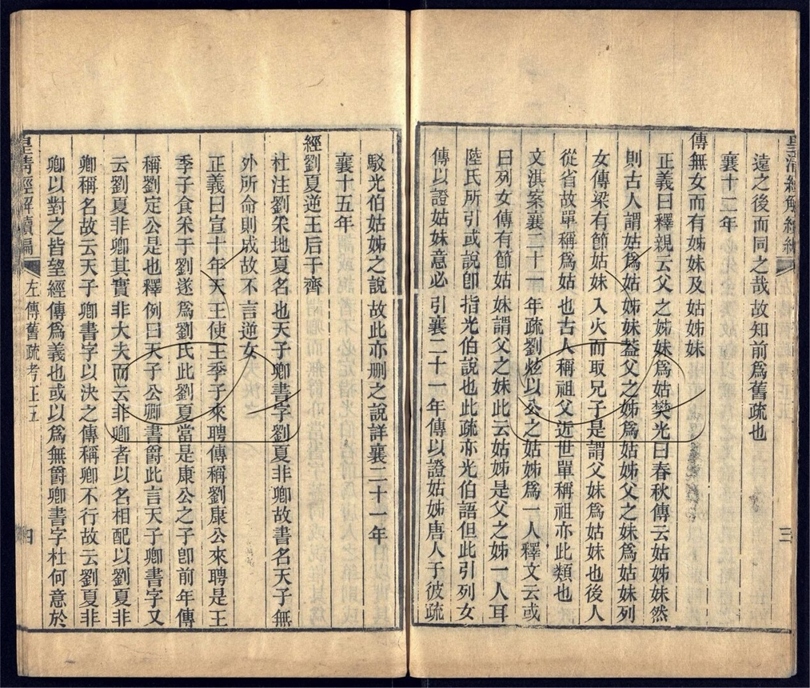 遠之後而同之哉故知前爲舊疏也
襄十二年
傳無女而有姊妹及姑姊妹
正義曰釋親云父之姊妹爲姑樊光曰春秋傳云姑姊妹然
則古人謂姑爲姑姊妹葢父之姊爲姑姊父之妹爲姑妹列
女傳梁有節姑妹入火而取兄子是謂父妹爲姑妹也後人
從省故單稱爲姑也古人稱祖父近世單稱祖亦此類也
文淇案襄二十一年疏劉炫以公之姑姊爲一人釋文云或
曰列女傳有節姑妹謂父之妹此云姑姊是父之姊一人耳
陸氏所引或說卽指光伯說也此疏亦光伯語但此引列女
傳以證姑妹意必引襄二十一年傳以證姑姊唐人于彼疏
皇清經解續編
三
駁光伯姑姊之說故此亦刪之說詳襄二十一年
襄十五年
經劉夏逆王后于齊
杜注劉采地夏名也天子卿書字劉夏非卿故書名天子無
外所命則成故不言逆女
正義曰宣十年天王使王季子來聘傳稱劉康公來聘是王
季子食采于劉遂爲劉氏此劉夏當是康公之子卽前年傳
稱劉定公是也釋例曰天子公卿書爵此言天子卿書字又
云劉夏非卿其實非大夫而云非卿者以名相配以劉夏非
卿稱名故云天子卿書字以決之傳稱卿不行故云劉夏非
卿以對之皆望經傳爲義也或以爲無爵卿書字杜何意於
皇清經解續編
左傳舊疏考正五
四